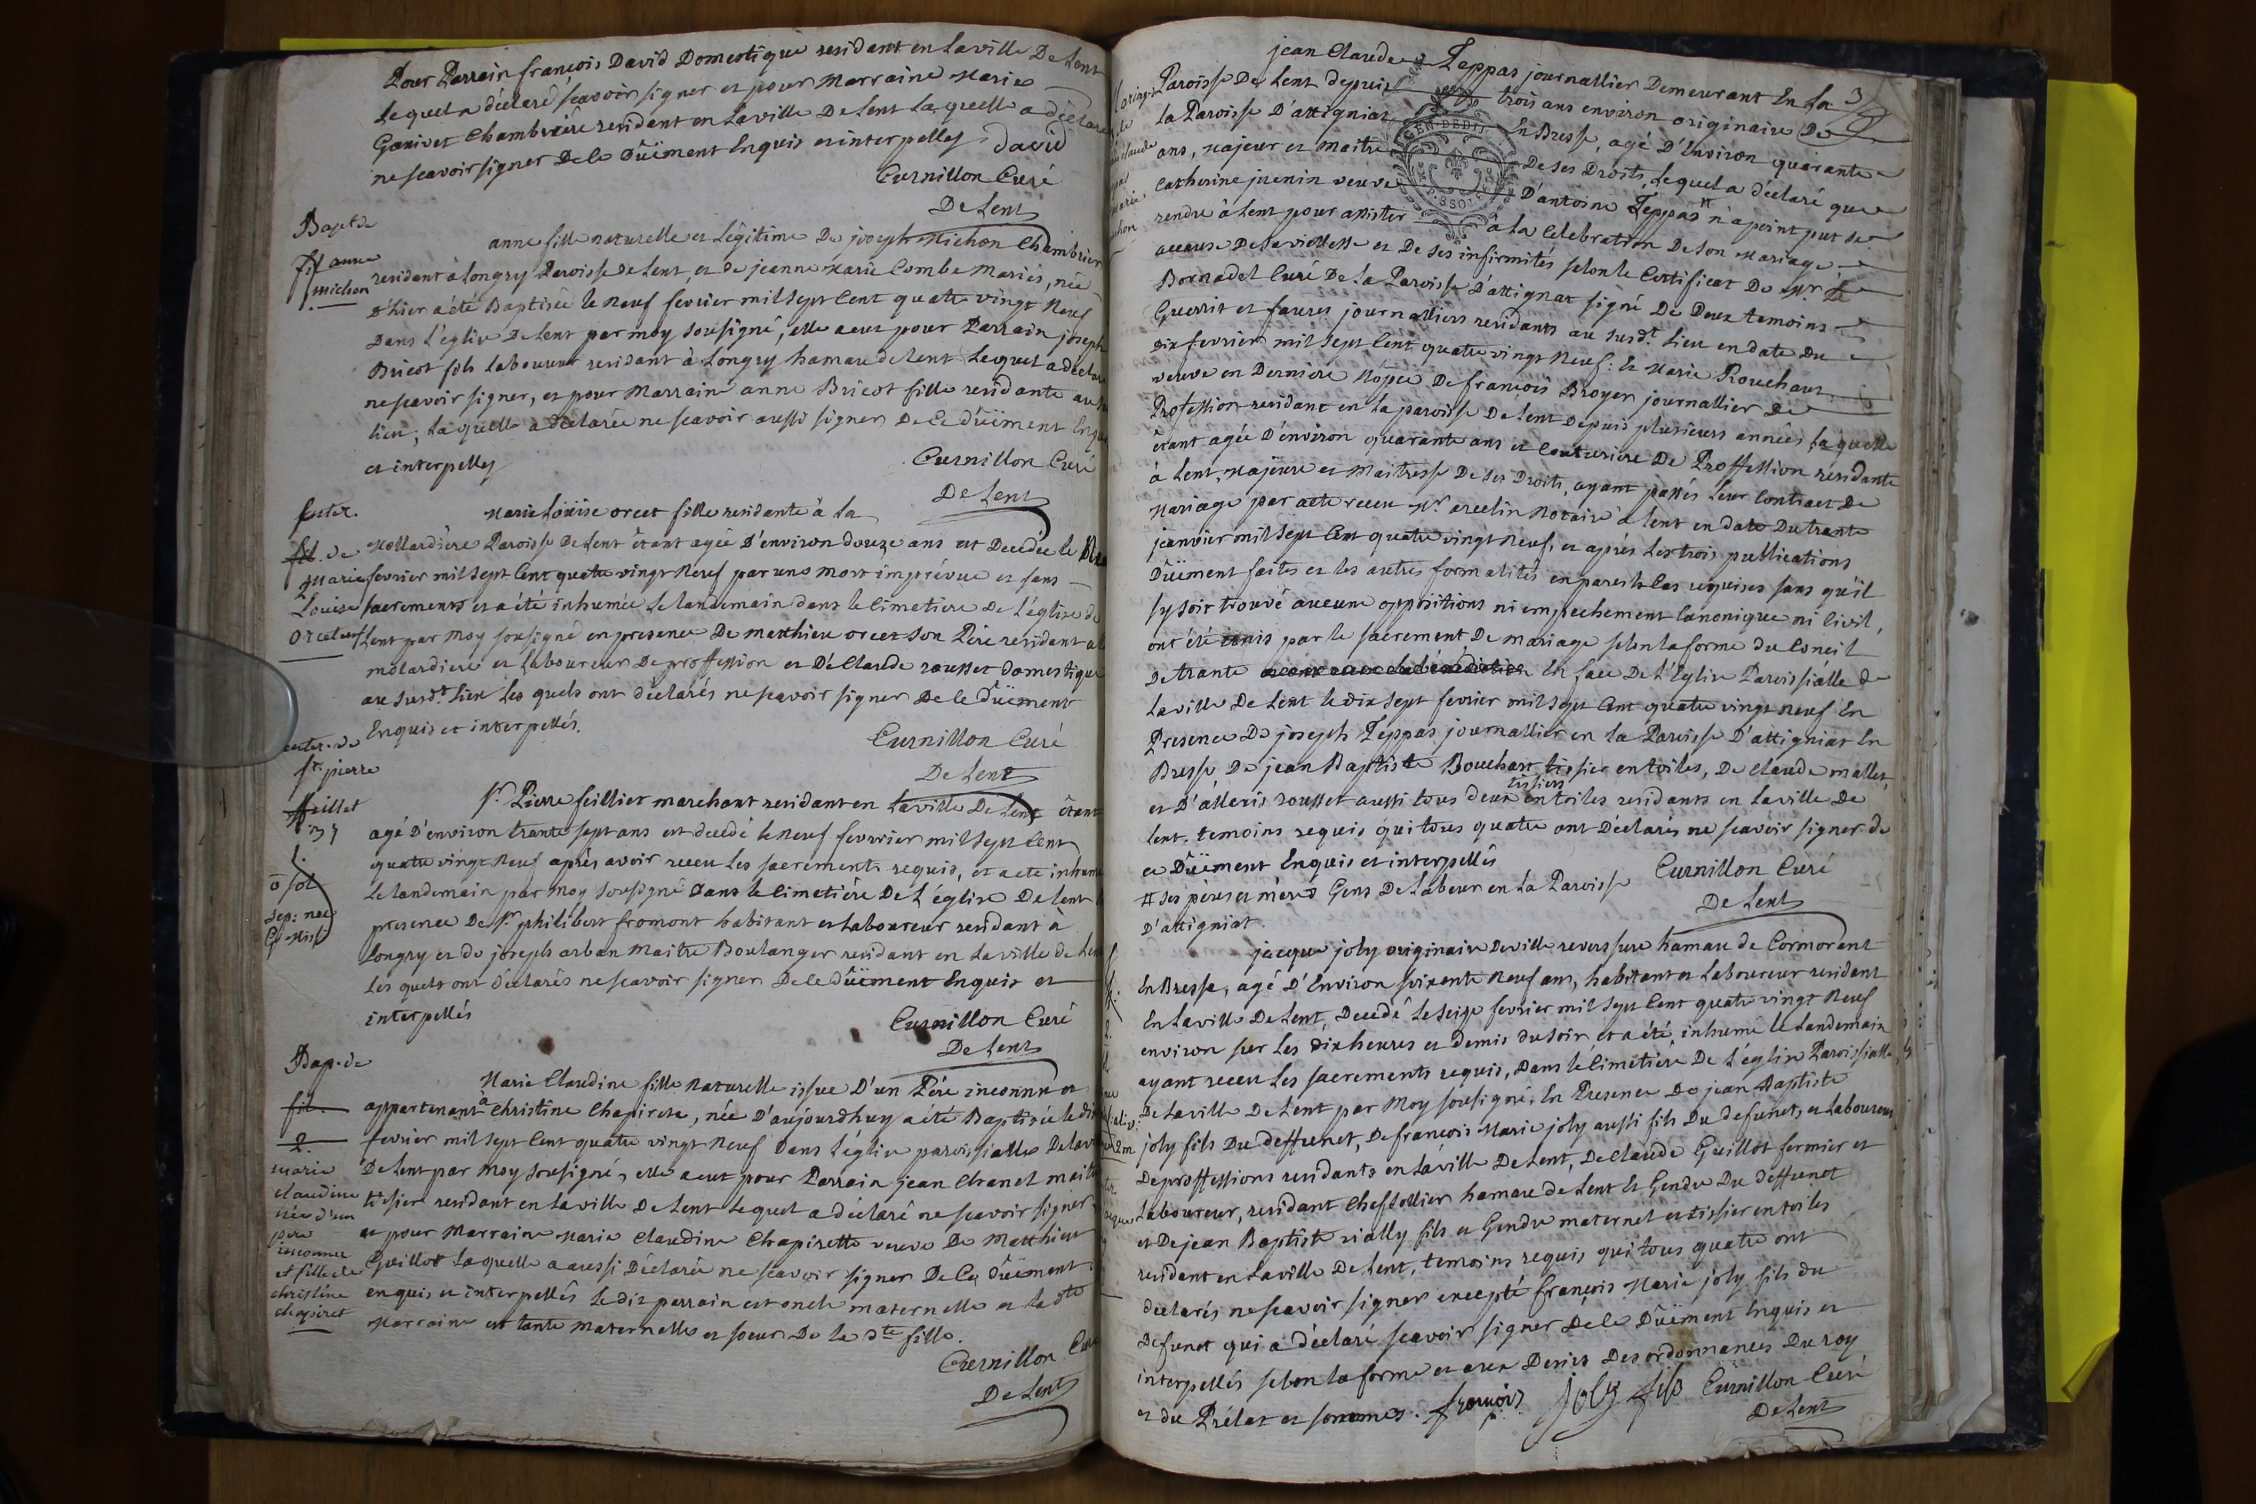 Pour Parrain françois David Domestique residant en la ville De Lent
Lequel a déclaré sçavoir signer et pour Marraine Marie
Ganivet Chambriére residant en la ville De Lent laquelle a déclaré
ne sçavoir signer De Ce Düëment Enquis et interpelley David
Curnillon Curé
De Lent
Bapt de
f. f anne
michon
anne fille naturelle et Légitime De joseph Michon Chambrier
residant à Longry Paroisse De Lent, et de jeanne Marie Combe Mariés, née
d'hier a été Baptisée le Neuf fevrier mil sept Cent quatre vingt Neuf
Dans l'église De Lent par moy sousigné, elle a eut pour Parrain joseph
Bricot fils laboureur residant à Longry hamau de lent Lequel a déclaré
ne sçavoir signer, et pour Marraine anne Bricot fille residante au
lieu, la quelle a Déclarée ne sçavoir aussi signer De Ce Düëment
et interpelley
Curnillon Curé
De Lent
Enter.
de
Marie
Louise
orcet
Marie Loüise orcet fille residante à la
Mollardiere Paroisse De Lent étant agée D'environ douze ans est Decedée le
fevrier mil sept Cent quatre vingt Neuf par une mort imprévue et sans
sacrements et a été inhumée Le landemain dans le Cimetiere De L'église de
Lent par Moy sousigné en presence De Matthieu orcet son Pére residant a la
molardiere et Laboureur De proffession et De Claude rousset domestique
au susdt. Lieu Les quels ont déclarés ne sçavoir signer De Ce Düëment
Enquis et interpellés.
Curnillon Curé
De Lent
enter. de
sr. pierre
feillet
37
sr. Pierre feillier marchant residant en La ville De Lent étant
agé D'environ trante sept ans est decédé le Neuf fevrier mil sept Cent
quatre vingt Neuf aprés avoir receu Les sacrements requis, et a ete inhumé
Le landemain par Moy sousigné Dans le Cimetiére De L'église De Lent
presence De sr. philibert fromont habitant et Laboureur residant à
Longry et de joseph arban Maitre Boulanger residant en La ville de Lent
Les quels ont déclarés ne sçavoir signer De Ce Düëment Enquis et
interpellés
Curnillon Curé
De Lent
Bap. de
fil.
2.
marie
claudine
née d'un
pére
inconnue
et fille de
christine
chapiret
Marie Claudine fille Naturelle issue D'un Pére inconnu et
appartenant à Christine Chapirete, née D'aujourdhuy a été Baptisée le dix
fevrier mil sept Cent quatre vingt Neuf Dans l'église paroissialle De la ville
De Lent par Moy sousigné, elle a eut pour Parrain jean Chanel maitre
tissier residant en la ville De Lent Lequel a déclaré ne sçavoir signer
et pour Marraine Marie Claudine Chapirette veuve De Matthieu
Guillot Laquelle a aussi Déclarée ne sçavoir signer De Ce Düëment
enquis et interpellés Le dit parrain est oncle maternelle et la dte
Marraine est tante Maternelle et soeur De la dte fille.
Curnillon Curé
De Lent
3
jean Claude Teppas journallier Demeurant En La
Paroisse De Lent depuis trois ans environ originaire De
La Paroisse D'attigniat En Bresse, agé D'Environ quarante
GEN. DE DIJ
ans, Majeur et Maitre De ses Droits, Lequel a déclaré que
Catherine juenin veuve D'antoine Teppas n'a point put se
rendre à Lent pour assister à la Celebration De son Mariage
acause De sa viellesse et De ses infirmités selon le Certificat De Mr.
Bornadel Curé De La Paroisse D'attignat signé De Deux temoins
Guerrit et faures journalliers residants au susdt. Lieu en date Du
Dix fevrier mil sept Cent quatre vingt Neuf: Et Marie Rouchaut
veuve en Derniére Nôpce De françois Broyer journallier De
Profession residant en La paroisse De Lent depuis plusieurs années La quelle
étant agée D'environ quarante ans et Couturiere De Proffession residante
à Lent, Majeure et Maitresse De ses Droits, ayant passés Leur Contract De
Mariage par acte receu Mr. arcelin Notaire à Lent en date Du trante
jeanvier mil sept Cent quatre vingt Neuf, et aprés Les trois publications
Düëment faites et les autres formalités en pareils Cas requises sans qu'il
s'y soit trouvé aucune oppositions ni empechement Canonique ni Civil,
ont été unis par le sacrement De Mariage selon la forme du Concil
De trante En face De L'Eglise Paroissiálle de
La ville De Lent le dix sept fevrier mil sept Cent quatre vingt neuf En
Presence De joseph Teppas journallier en la Paroisse D'attigniat En
Bresse, De jean Baptiste Bouchart tissier en toiles, De Claude mallet,
et D'allexis rousset aussi tous deux tissiers en toiles residants en la ville De
Lent, temoins requis qui tous quatre ont Déclarés ne sçavoir signer de
ce Düëment Enquis et interpellés
Curnillon Curé
De Lent
# ses péres et méres Gens De Labeur en La Paroisse
D'attigniat.
jacque joly originaire De ville reverssure hamau de Cormorent
En Bresse, agé D'Environ soixente Neuf ans, habitant et Laboureur residant
En La ville De Lent, Decédé Le seize fevrier mil sept Cent quatre vingt Neuf
environ sur Les dix heures et demis du soir, et a été inhumé le Landemain
ayant receu Les sacrements requis, Dans le Cimetiére De L'église Paroissialle
De La ville De Lent par Moy sousigné, En Presence De jean Baptiste
joly fils Du deffunct, De françois Marie joly aussi fils Du defunct, et Laboureurs
De proffessions residants en La ville De Lent, De Claude Guillot fermier et
Laboureur, residant Chessollier hamau de Lent Et Gendre Du deffunct
et De jean Baptiste rially fils et Gendre maternel et tissier en toiles
residant en La ville De Lent, temoins requis qui tous quatre ont
declarés ne sçavoir signer excepté françois Marie joly fils du
Defunct qui a déclaré sçavoir signer De Ce Düëment Enquis et
interpellés selon la forme et aux Desirs Des ordonnances Du roy
et du Prélat et sommes. françois joly fils Curnillon Curé
De Lent